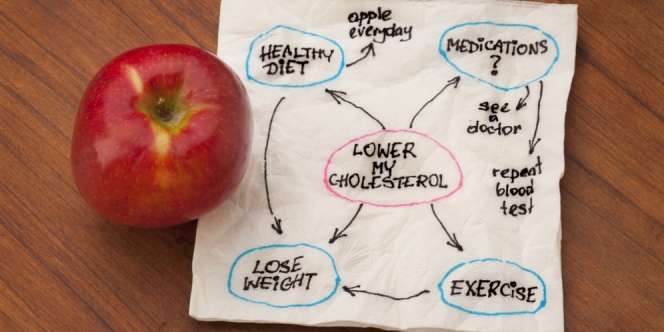 apple
everyday
HEALTHY
DIET
MEDICATIONS
?
see
a
doctor
repeat
blood
test
LOWER
MY
CHOLESTEROL
LOSE
WEIGHT
EXERCISE